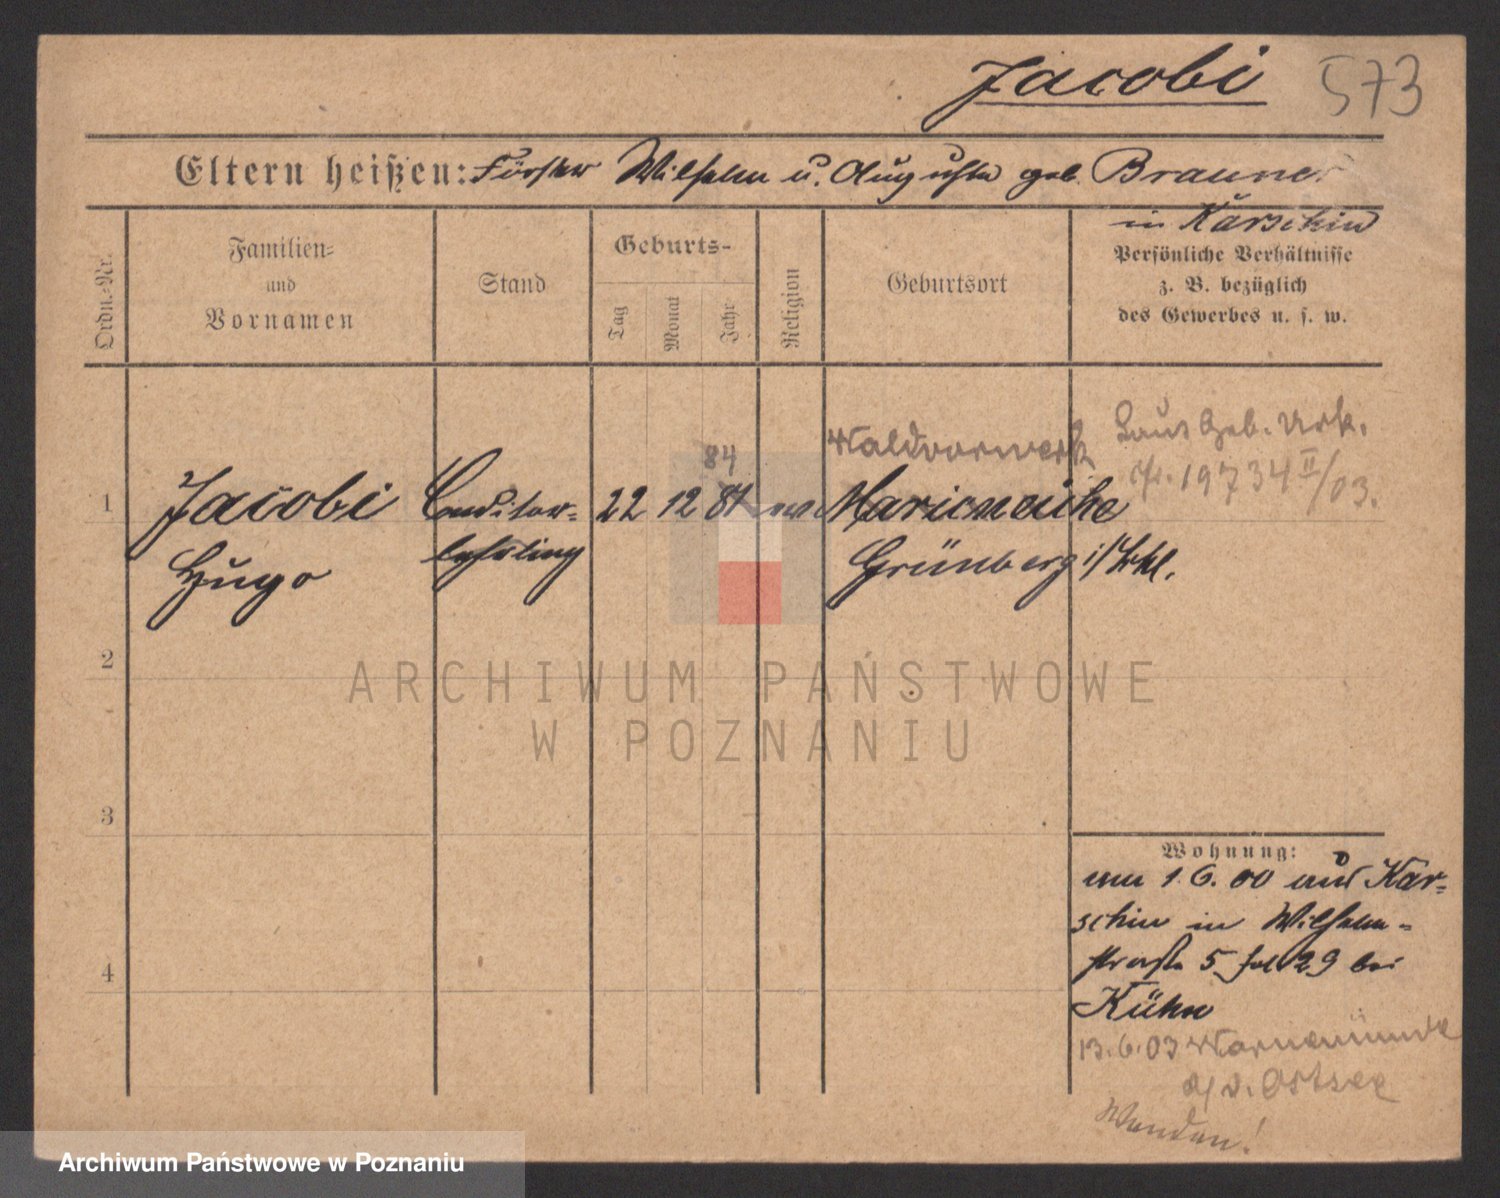 Jacobi 573
Eltern heißen: Förster Wilhelm u. Auguste geb. Brauner
in Karschin
Ordn.-Nr.
Familien-
und
Vornamen
Stand
Geburts-
Tag
Monat
Jahr
Religion
Geburtsort
Persönliche Verhältnisse
z. B. bezüglich
des Gewerbes u. s. w.
84
Waldvorwerk
Laut Geb. Urk.
19734 II/03.
1 Jacobi Conditor- 22 12 81 ev Marieneiche
Hugo lehrling Grünberg i/
2
3
4
Wohnung:
am 1.6.00 aus Kar-
schin in Wilhelm-
straße 5 29 bei
Kühn
13.6.03 Warnemünde
a/d. Ostsee
Wenden!
ARCHIWUM PAŃSTWOWE
W POZNANIU
Archiwum Państwowe w Poznaniu